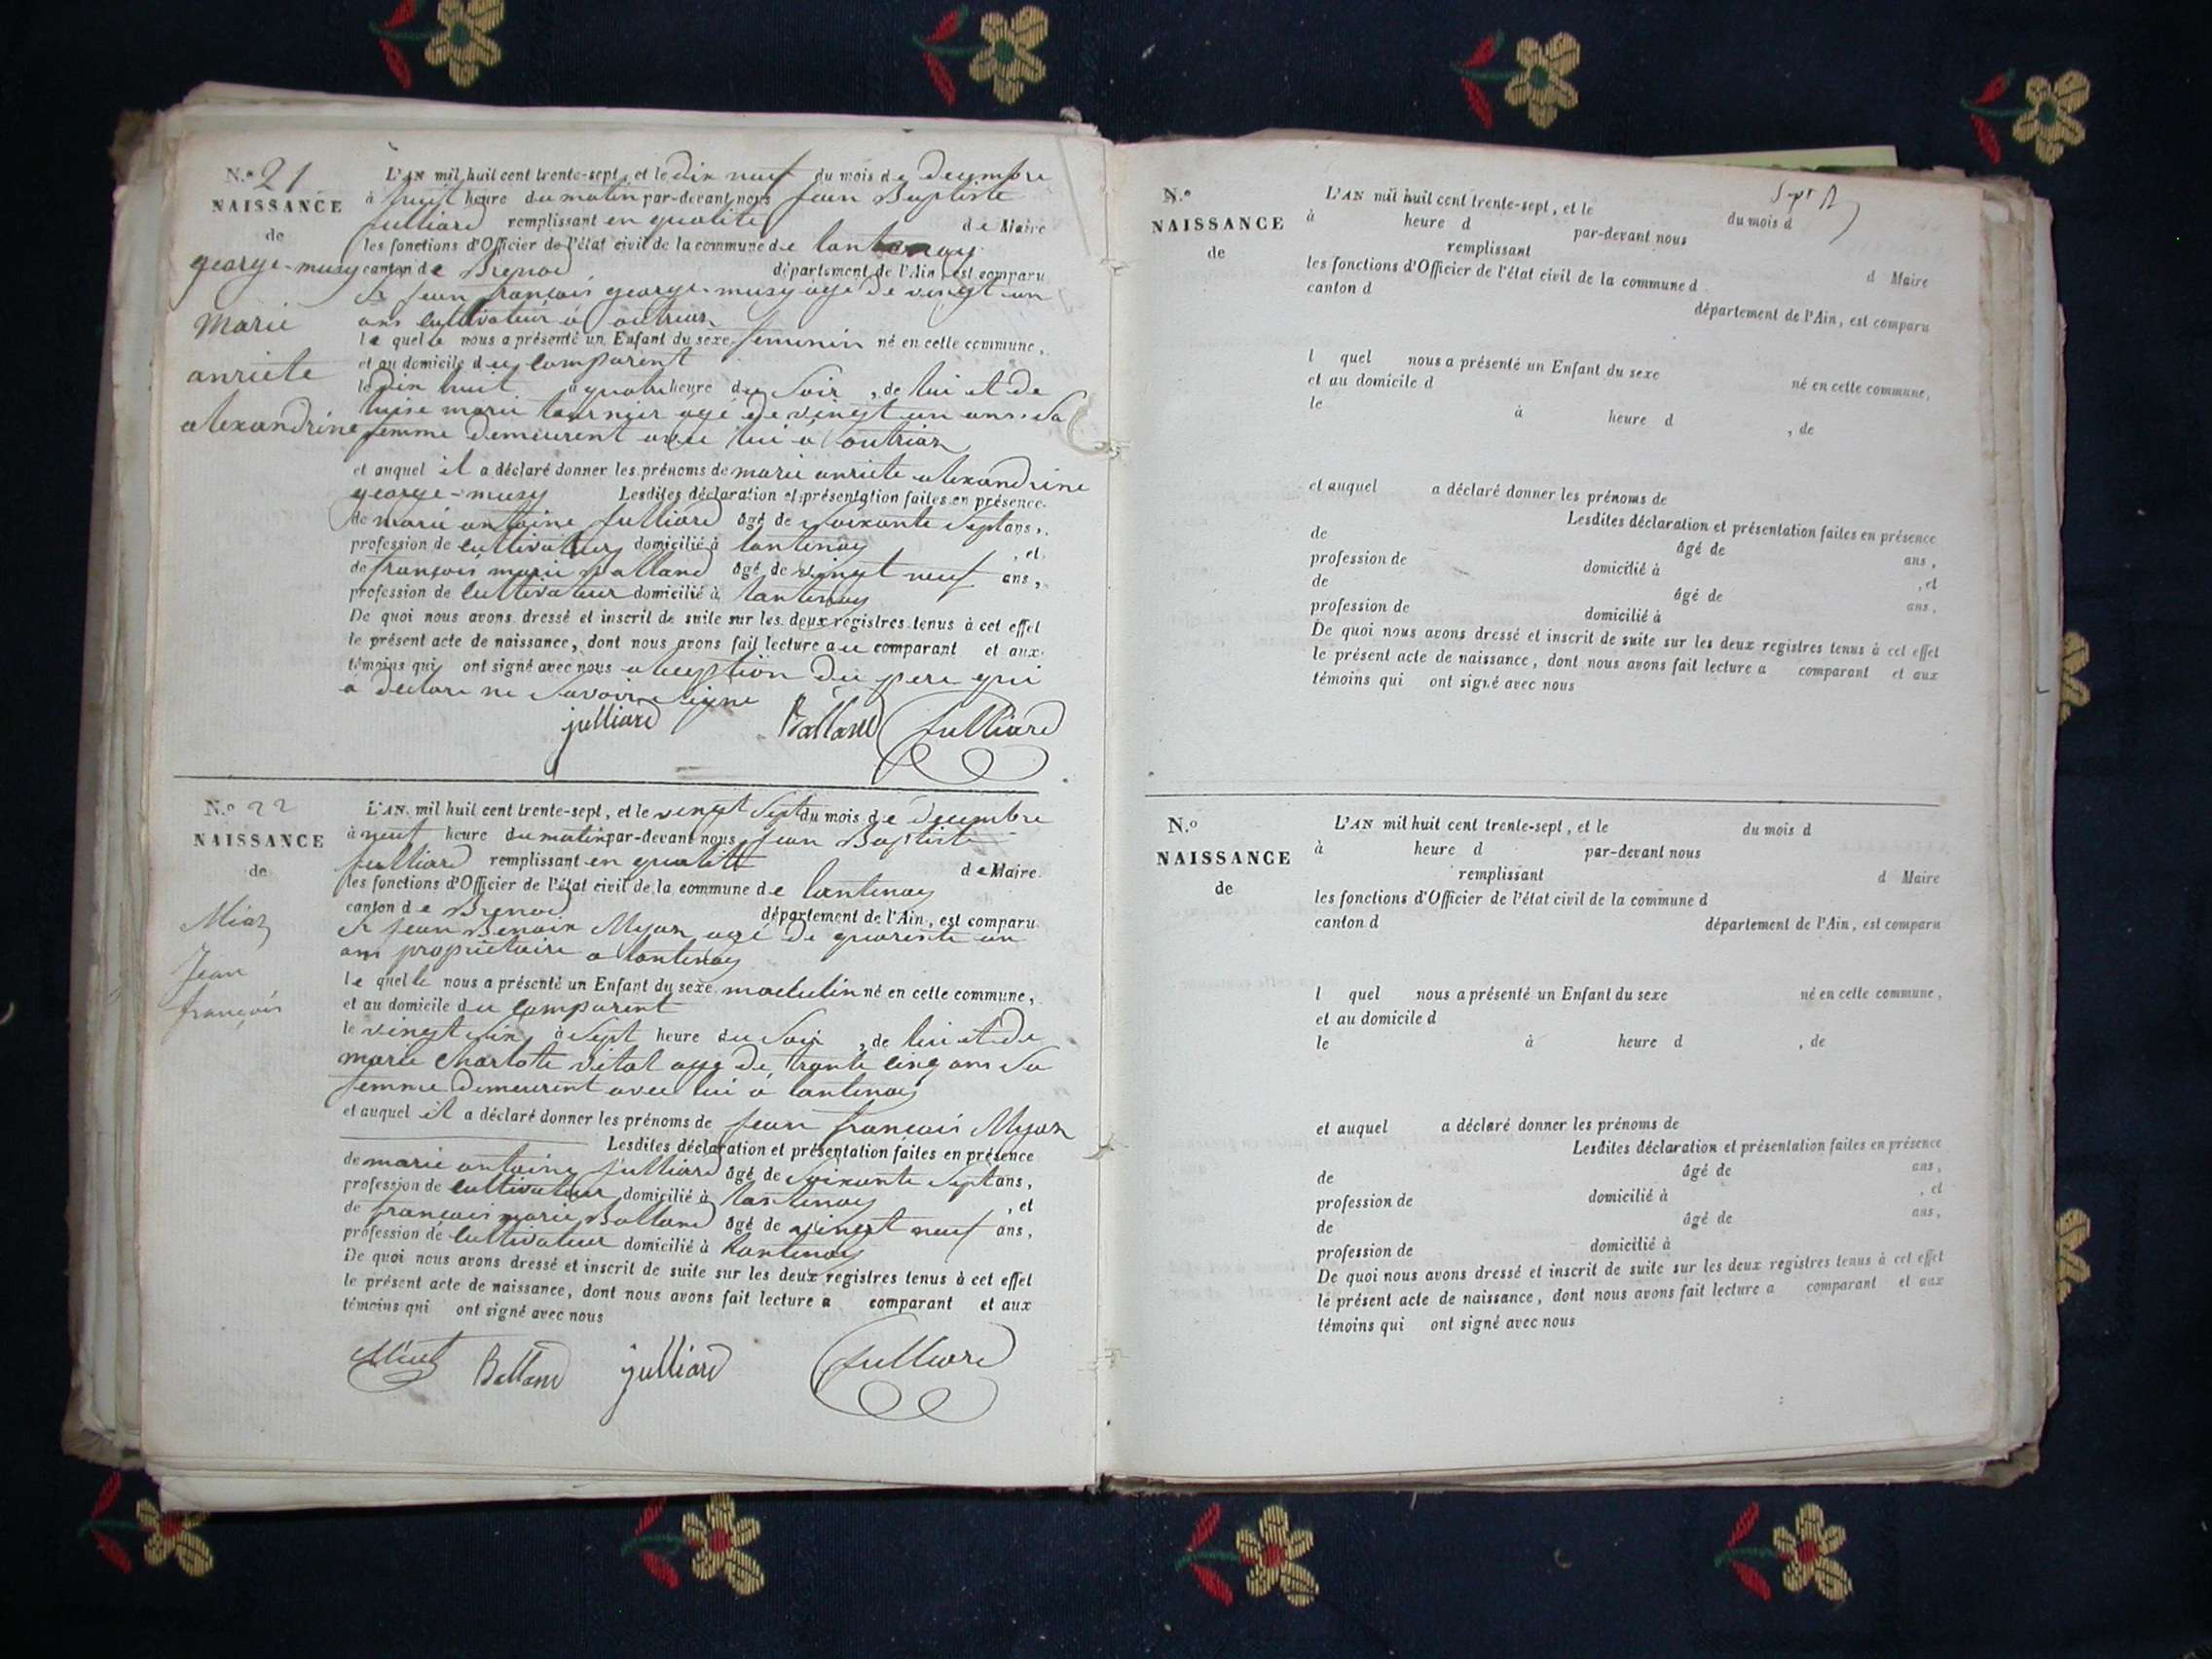 N.o 21
NAISSANCE
de
george-musy
marie
anriete
alexandrine
L'AN mil huit cent trente-sept, et le dix neuf du mois de decembre
à huit heure du matin par-devant nous jean Baptiste
julliard remplissant en qualité de Maire
les fonctions d'Officier de l'état civil de la commune de lantenay
canton de Brenod département de l'Ain, est comparu
Sr jean françois george-musy agé de vingt un
ans cultivateur a outriaz
le quel nous a présenté un Enfant du sexe feminin né en cette commune,
et au domicile du comparent
le dix huit à quatre heure du Soir, de lui et de
luise marie tournier agé de vingt un ans Sa
femme demeurent avec lui a outriaz
et auquel il a déclaré donner les prénoms de marie anriete alexandrine
george-musy Lesdites déclaration et présentation faites en présence
de marie antoine julliard âgé de Soixante Sept ans,
profession de cultivateur domicilié à lantenay, et
de françois marie Balland âgé de vingt neuf ans,
profession de cultivateur domicilié à lantenay
De quoi nous avons dressé et inscrit de suite sur les deux registres tenus à cet effet
le présent acte de naissance, dont nous avons fait lecture au comparant et aux
témoins qui ont signé avec nous a lexeption du pere qui
a declare ne Savoir signe
julliard Balland julliard
N.o 22
NAISSANCE
de
Miaz
Jean
françois
L'AN mil huit cent trente-sept, et le vingt Sept du mois de decembre
à neuf heure du matin par-devant nous jean Baptiste
julliard remplissant en qualité de Maire
les fonctions d'Officier de l'état civil de la commune de lantenay
canton de Brenod département de l'Ain, est comparu
Sr jean Benoix Myaz agé de quarente un
ans propriétaire a lantenay
le quel nous a présenté un Enfant du sexe masculin né en cette commune,
et au domicile du comparent
le vingt Six à Sept heure du Soir, de lui et de
marie Charlote vital age de trante cinq ans Sa
femme demeurent avec lui a lantenay
et auquel il a déclaré donner les prénoms de jean françois Myaz
Lesdites déclaration et présentation faites en présence
de marie antoine julliard âgé de Soixante Sept ans,
profession de cultivateur domicilié à lantenay, et
de françois marie Balland âgé de vingt neuf ans,
profession de cultivateur domicilié à Lantenay
De quoi nous avons dressé et inscrit de suite sur les deux registres tenus à cet effet
le présent acte de naissance, dont nous avons fait lecture a comparant et aux
témoins qui ont signé avec nous
Balland julliard julliard
N.o
NAISSANCE
de
L'AN mil huit cent trente-sept, et le du mois d
à heure d par-devant nous
remplissant d Maire
les fonctions d'Officier de l'état civil de la commune d
canton d département de l'Ain, est comparu
l quel nous a présenté un Enfant du sexe né en cette commune,
et au domicile d
le à heure d , de
et auquel a déclaré donner les prénoms de
Lesdites déclaration et présentation faites en présence
de âgé de ans,
profession de domicilié à , et
de âgé de ans,
profession de domicilié à
De quoi nous avons dressé et inscrit de suite sur les deux registres tenus à cet effet
le présent acte de naissance, dont nous avons fait lecture a comparant et aux
témoins qui ont signé avec nous
N.o
NAISSANCE
de
L'AN mil huit cent trente-sept, et le du mois d
à heure d par-devant nous
remplissant d Maire
les fonctions d'Officier de l'état civil de la commune d
canton d département de l'Ain, est comparu
l quel nous a présenté un Enfant du sexe né en cette commune,
et au domicile d
le à heure d , de
et auquel a déclaré donner les prénoms de
Lesdites déclaration et présentation faites en présence
de âgé de ans,
profession de domicilié à , et
de âgé de ans,
profession de domicilié à
De quoi nous avons dressé et inscrit de suite sur les deux registres tenus à cet effet
le présent acte de naissance, dont nous avons fait lecture a comparant et aux
témoins qui ont signé avec nous